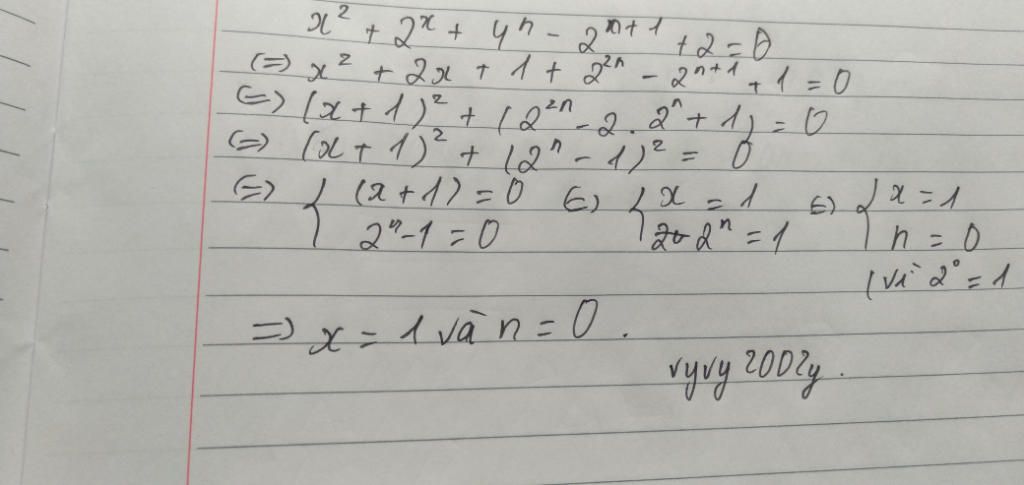 x² + 2ˣ + 4ⁿ - 2ⁿ⁺¹ + 2 = 0
(=) x² + 2x + 1 + 2²ⁿ - 2ⁿ⁺¹ + 1 = 0
(=) (x + 1)² + (2²ⁿ - 2 . 2ⁿ + 1) = 0
(=) (x + 1)² + (2ⁿ - 1)² = 0
(=) { (x + 1) = 0 (=) { x = 1 (=) { x = 1
2ⁿ - 1 = 0 2ⁿ = 1 n = 0
(vì 2⁰ = 1
=) x = 1 và n = 0 .
vyvy 2002y .